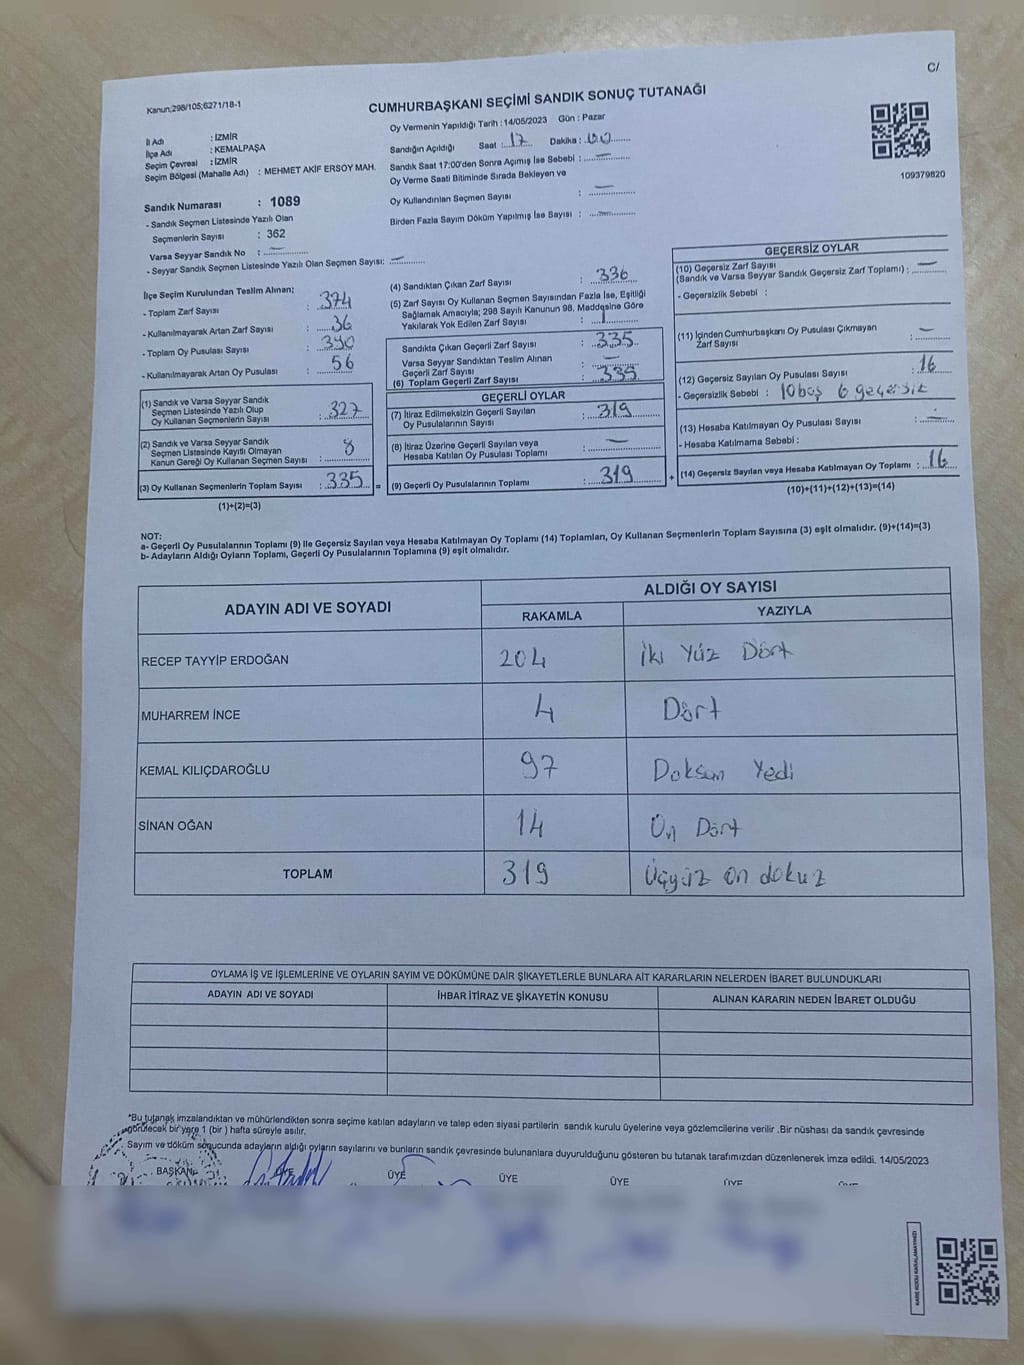 C/
Kanun;298/105;6271/18-1
CUMHURBAŞKANI SEÇİMİ SANDIK SONUÇ TUTANAĞI
109379820
İl Adı : İZMİR
İlçe Adı : KEMALPAŞA
Seçim Çevresi : İZMİR
Seçim Bölgesi (Mahalle Adı) : MEHMET AKİF ERSOY MAH.
Sandık Numarası : 1089
- Sandık Seçmen Listesinde Yazılı Olan
Seçmenlerin Sayısı : 362
Varsa Seyyar Sandık No : —
- Seyyar Sandık Seçmen Listesinde Yazılı Olan Seçmen Sayısı: —
Oy Vermenin Yapıldığı Tarih : 14/05/2023 Gün : Pazar
Sandığın Açıldığı Saat : 17 Dakika :
Sandık Saat 17:00'den Sonra Açımış İse Sebebi : —
Oy Verme Saati Bitiminde Sırada Bekleyen ve
Oy Kullandırılan Seçmen Sayısı : —
Birden Fazla Sayım Döküm Yapılmış İse Sayısı : —
İlçe Seçim Kurulundan Teslim Alınan;
- Toplam Zarf Sayısı : 374
- Kullanılmayarak Artan Zarf Sayısı : 36
- Toplam Oy Pusulası Sayısı : 390
- Kullanılmayarak Artan Oy Pusulası : 56
(1) Sandık ve Varsa Seyyar Sandık
Seçmen Listesinde Yazılı Olup
Oy Kullanan Seçmenlerin Sayısı : 327
(2) Sandık ve Varsa Seyyar Sandık
Seçmen Listesinde Kayıtlı Olmayan
Kanun Gereği Oy Kullanan Seçmen Sayısı : 8
(3) Oy Kullanan Seçmenlerin Toplam Sayısı : 335 =
(1)+(2)=(3)
(4) Sandıktan Çıkan Zarf Sayısı : 336
(5) Zarf Sayısı Oy Kullanan Seçmen Sayısından Fazla İse, Eşitliği
Sağlamak Amacıyla; 298 Sayılı Kanunun 98. Maddesine Göre
Yakılarak Yok Edilen Zarf Sayısı : 1
Sandıkta Çıkan Geçerli Zarf Sayısı : 335
Varsa Seyyar Sandıktan Teslim Alınan
Geçerli Zarf Sayısı : —
(6) Toplam Geçerli Zarf Sayısı : 335
GEÇERLİ OYLAR
(7) İtiraz Edilmeksizin Geçerli Sayılan
Oy Pusulalarının Sayısı : 319
(8) İtiraz Üzerine Geçerli Sayılan veya
Hesaba Katılan Oy Pusulası Toplamı : —
(9) Geçerli Oy Pusulalarının Toplamı : 319 +
GEÇERSİZ OYLAR
(10) Geçersiz Zarf Sayısı
(Sandık ve Varsa Seyyar Sandık Geçersiz Zarf Toplamı) : —
- Geçersizlik Sebebi :
(11) İçinden Cumhurbaşkanı Oy Pusulası Çıkmayan
Zarf Sayısı : —
(12) Geçersiz Sayılan Oy Pusulası Sayısı : 16
- Geçersizlik Sebebi : 10 boş 6 geçersiz
(13) Hesaba Katılmayan Oy Pusulası Sayısı : —
- Hesaba Katılmama Sebebi :
(14) Geçersiz Sayılan veya Hesaba Katılmayan Oy Toplamı : 16
(10)+(11)+(12)+(13)=(14)
NOT:
a- Geçerli Oy Pusulalarının Toplamı (9) İle Geçersiz Sayılan veya Hesaba Katılmayan Oy Toplamı (14) Toplamları, Oy Kullanan Seçmenlerin Toplam Sayısına (3) eşit olmalıdır. (9)+(14)=(3)
b- Adayların Aldığı Oyların Toplamı, Geçerli Oy Pusulalarının Toplamına (9) eşit olmalıdır.
ADAYIN ADI VE SOYADI ALDIĞI OY SAYISI
RAKAMLA YAZIYLA
RECEP TAYYİP ERDOĞAN 204 İki Yüz Dört
MUHARREM İNCE 4 Dört
KEMAL KILIÇDAROĞLU 97 Doksan Yedi
SİNAN OĞAN 14 On Dört
TOPLAM 319 Üçyüz on dokuz
OYLAMA İŞ VE İŞLEMLERİNE VE OYLARIN SAYIM VE DÖKÜMÜNE DAİR ŞİKAYETLERLE BUNLARA AİT KARARLARIN NELERDEN İBARET BULUNDUKLARI
ADAYIN ADI VE SOYADI İHBAR İTİRAZ VE ŞİKAYETİN KONUSU ALINAN KARARIN NEDEN İBARET OLDUĞU
*Bu tutanak imzalandıktan ve mühürlendikten sonra seçime katılan adayların ve talep eden siyasi partilerin sandık kurulu üyelerine veya gözlemcilerine verilir .Bir nüshası da sandık çevresinde
görülecek bir yere 1 (bir ) hafta süreyle asılır.
Sayım ve döküm sonucunda adayların aldığı oyların sayılarını ve bunların sandık çevresinde bulunanlara duyurulduğunu gösteren bu tutanak tarafımızdan düzenlenerek imza edildi. 14/05/2023
BAŞKAN ÜYE ÜYE ÜYE ÜYE ÜYE
KARE KODU KARALAMAYINIZ!